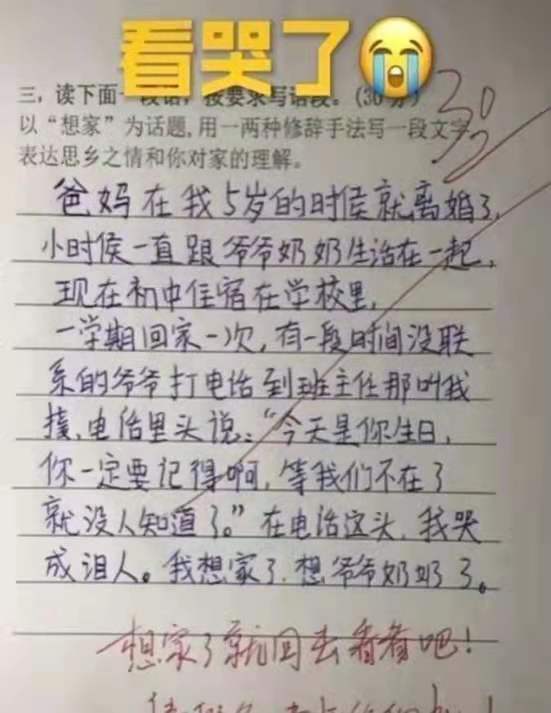 看哭了
三，读下面一段话，按要求写语段。(30分)
以“想家”为话题,用一两种修辞手法写一段文字
表达思乡之情和你对家的理解。
30
爸妈在我5岁的时候就离婚了，
小时侯一直跟爷爷奶奶生活在一起，
现在初中住宿在学校里，
一学期回家一次，有一段时间没联
系的爷爷打电话到班主任那叫我
接，电话里头说：“今天是你生日，
你一定要记得啊，等我们不在了
就没人知道了。”在电话这头，我哭
成泪人。我想家了，想爷爷奶奶了。
想家了就回去看看吧！